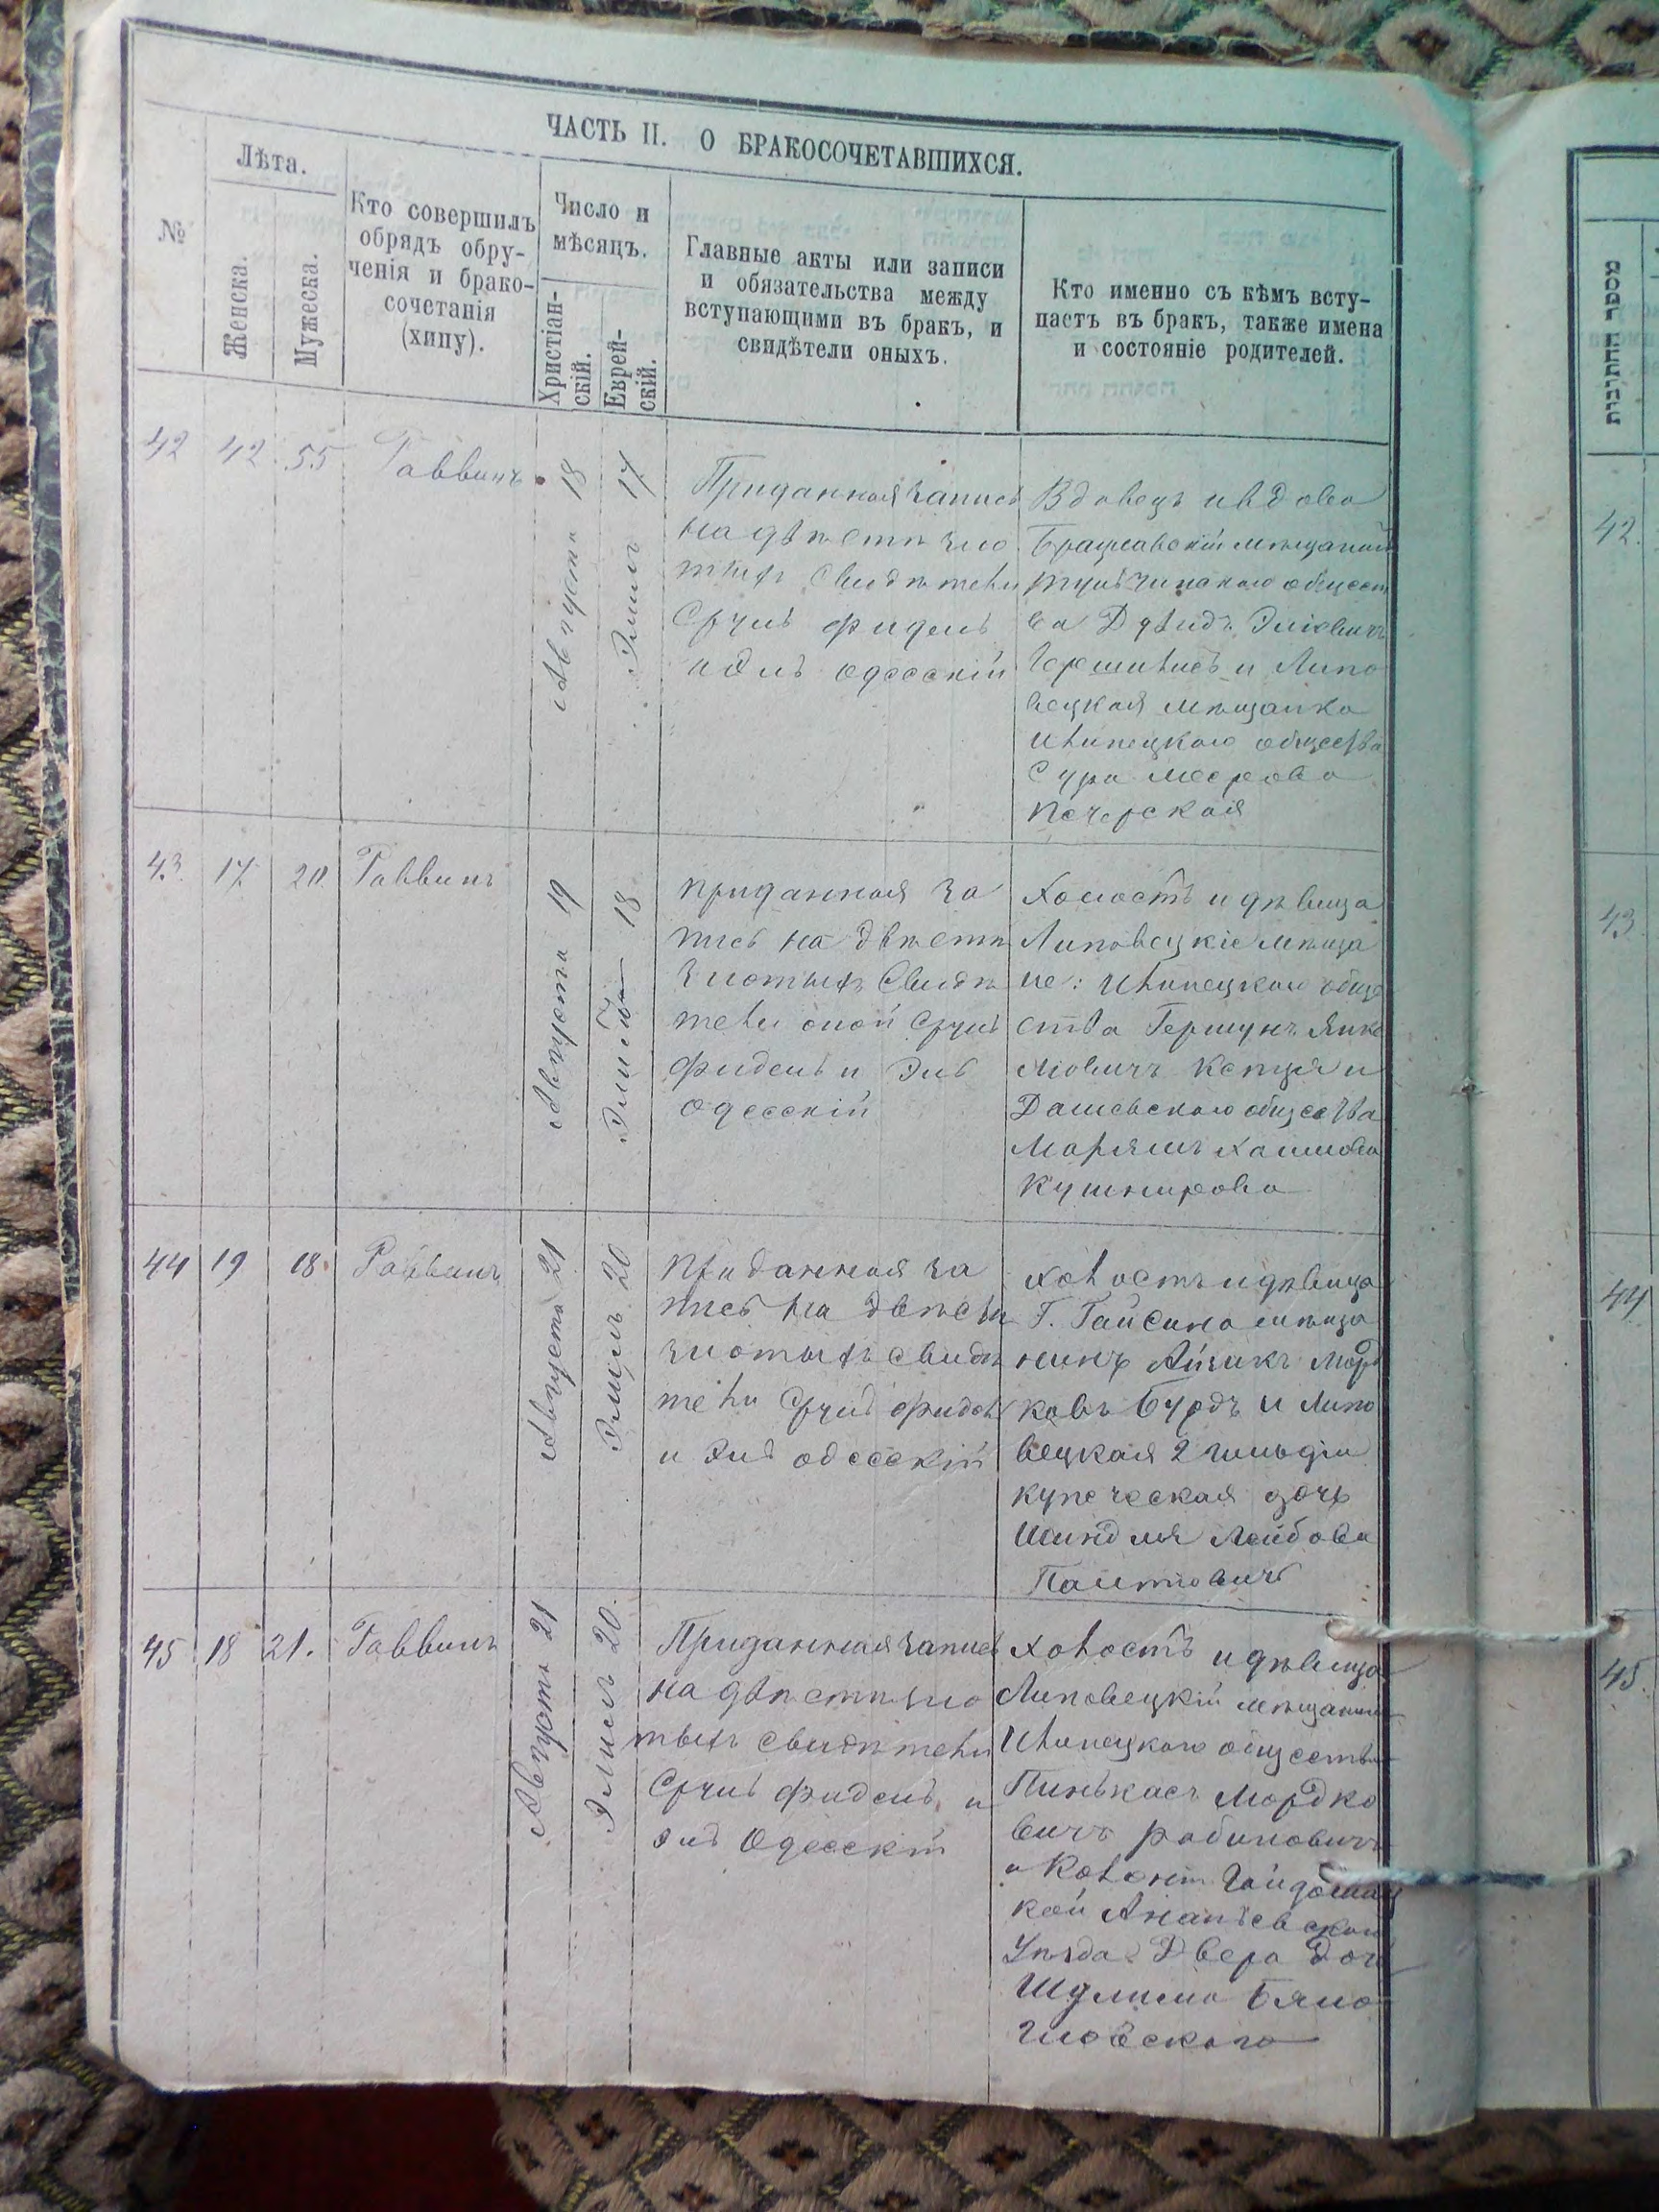 ЧАСТЬ II. О БРАКОСОЧЕТАВШИХСЯ.
№
Лѣта.
Женска.
Мужеска.
Кто совершилъ
обрядъ обру-
ченія и брако-
сочетанія
(хипу).
Число и
мѣсяцъ.
Христіан-
скій.
Еврей-
скій.
Главные акты или записи
и обязательства между
вступающими въ бракъ, и
свидѣтели оныхъ.
Кто именно съ кѣмъ всту-
паетъ въ бракъ, также имена
и состояніе родителей.
42
42
55
Раввинъ
Августа 18
Элиль 17
Приданная запись
на двѣсти зло
тыхъ свидѣтели
Сруль Фидель
и Эль Одесскій
Вдовецъ и вдова
мѣщанин
общест
ва
и Липо
вецкая мѣщанка
Илинецкаго общества
Сура Меерова
Печерская
43
17
20
Раввинъ
Августа 19
18
Приданная за
пись на двѣсти
злотыхъ Свидѣ
тели оной Сруль
Фидель и Эль
Одесскій
Холостъ и дѣвица
Липовецкіе мѣща
не: Илинецкаго обще
ства Гершунъ Янке
лювичъ и
Дашевскаго общества
Марьямъ Хаимова
Кушнирова
44
19
18
Раввинъ
Августа 21
Элиль 20
Приданная за
пись на двѣсти
злотыхъ свидѣ
тели Сруль Фидель
и Эль Одесскій
Холостъ и дѣвица
Г. Гайсина мѣща
нинъ Айзикъ Морд
ковъ Бурдъ и Липо
вецкая 2 гильдіи
купеческая дочь
Шиндля Лейбова
45
18
21.
Раввинъ
Августа 21
Элиль 20.
Приданная запись
на двѣсти зло
тыхъ свидѣтели
Сруль Фидель и
Эль Одесскій
Холостъ и дѣвица
Липовецкій мѣщанинъ
Илинецкаго общества
Пинькасъ Мордко
вичъ Рабиновичъ
и
кой Ананьевскаго
Уѣзда Двера дочь
Шулима
מספר החתונות
42.
43
44
45.